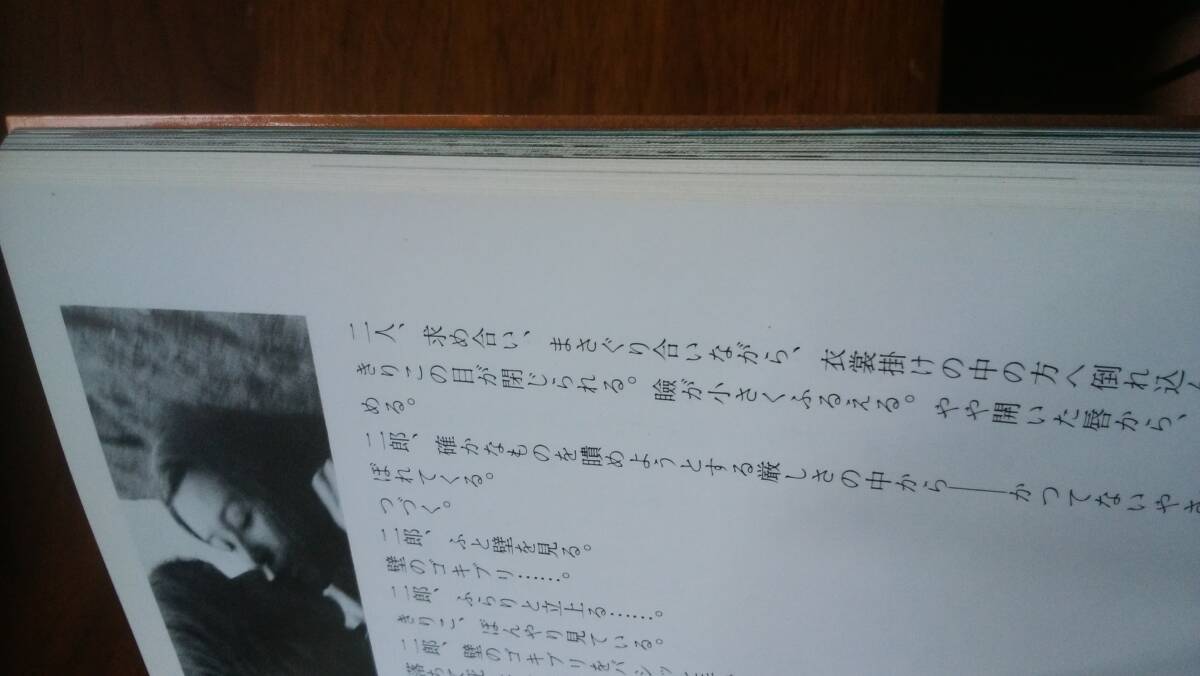 二人、求め合い、まさぐり合いながら、衣裳掛けの中の方へ倒れ込
きりこの目が閉じられる。瞼が小さくふるえる。やや開いた唇から、
める。
二郎、確かなものを贖めようとする厳しさの中から――かつてないやさ
ぼれてくる。
つづく。
二郎、ふと壁を見る。
壁のゴキブリ……。
二郎、ふらりと立上る……。
きりこ、ぼんやり見ている。
二郎、壁のゴキブリをバシッ
落ち